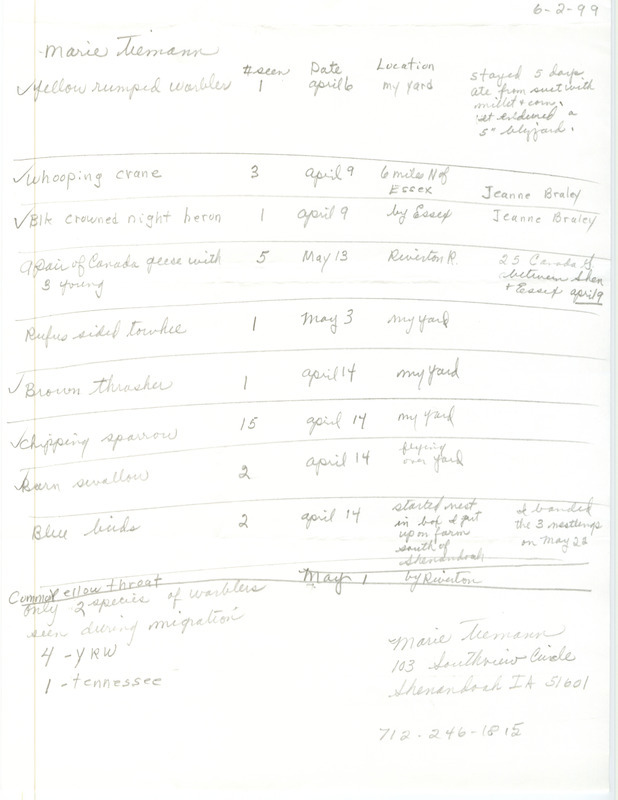 6-2-99
Marie Tiemann
# seen Date Location
✓Yellow rumped warbler 1 april 6 my yard stayed 5 days
ate from suet with
millet & corn.
It endured a
5" blizzard.
✓Whooping crane 3 april 9 6 miles N of
Essex Jeanne Braley
✓Blk crowned night heron 1 april 9 by Essex Jeanne Braley
a pair of Canada geese with 5 May 13 Riverton R. 25 Canada G
3 young between Shen
& Essex april 9
Rufus sided towhee 1 May 3 my yard
✓Brown thrasher 1 april 14 my yard
✓Chipping sparrow 15 april 14 my yard
✓Barn swallow 2 april 14 flying
over yard
Blue birds 2 april 14 started nest
in box I put
up on farm
south of
Shenandoah
I banded
the 3 nestlings
on May 22
Common Yellow throat May 1 by Riverton
only 2 species of warblers
seen during migration
4 - YRW
1 - tennessee
Marie Tiemann
103 Southview Circle
Shenandoah IA 51601
712-246-1815